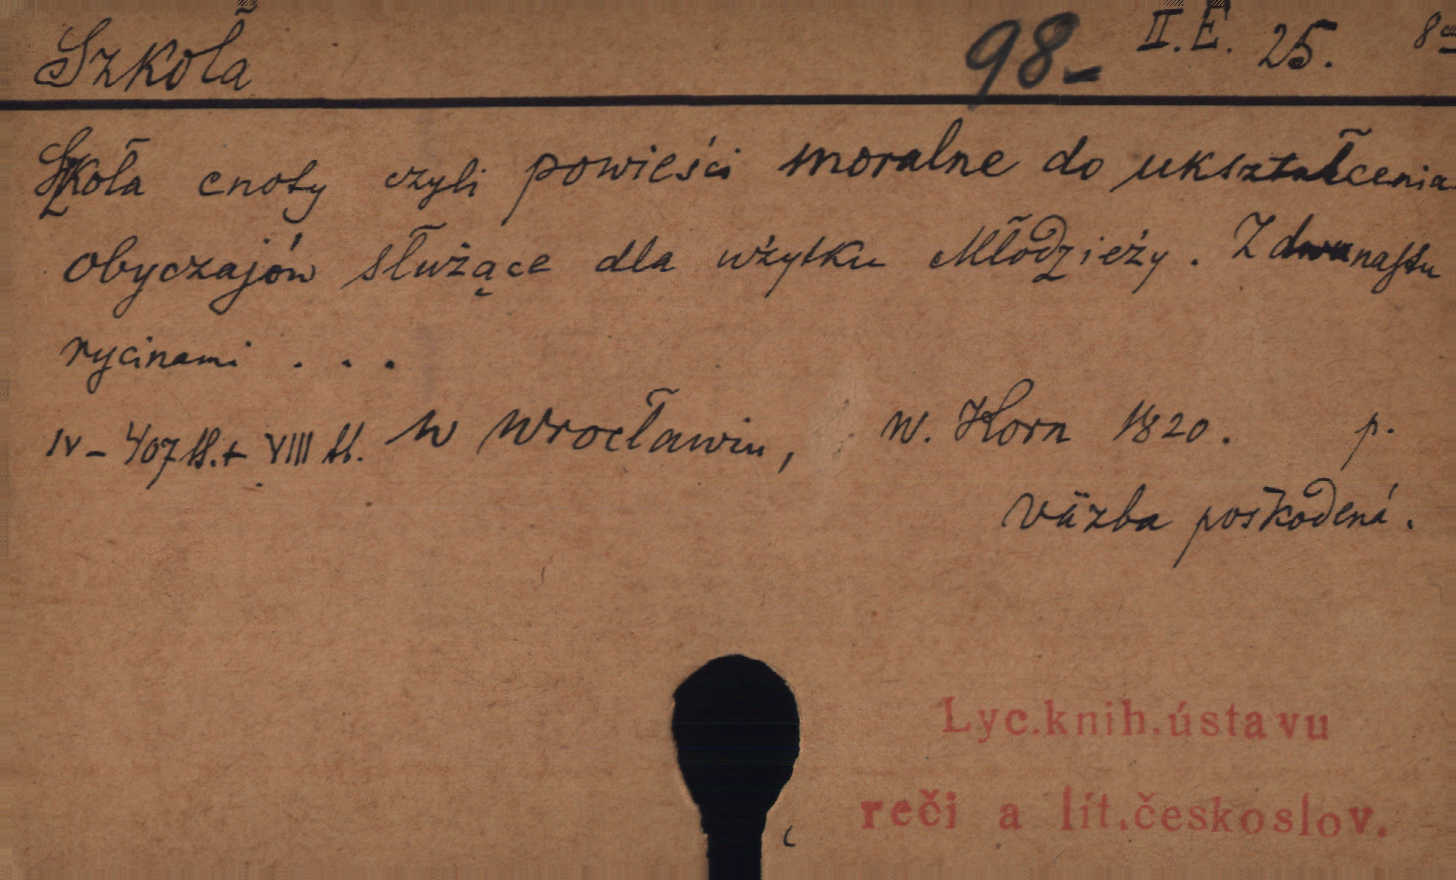 Szkoła 98- II. E. 25. 8°
Szkoła cnoty czyli powieści moralne do ukształcenia
obyczajów służące dla użytku Młodzieży. Z dwunastu
rycinami . . .
IV - 407 st. + VIII st. w Wrocławiu, W. Korn 1820. p.
väzba poškodená.
Lyc.knih.ústavu
reči a lit.českoslov.